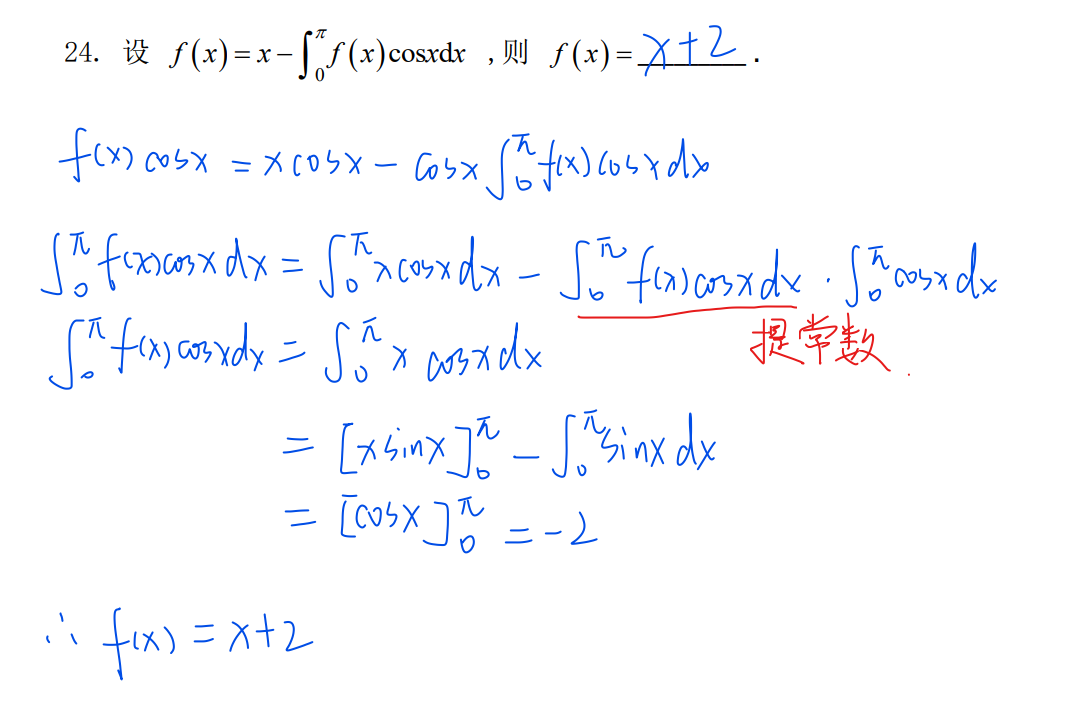 24. 设 f(x)=x-∫₀^π f(x)cosxdx ,则 f(x)= x+2 .
f(x) cosx = x cosx - cosx ∫₀^π f(x) cosx dx
∫₀^π f(x) cosx dx = ∫₀^π x cosx dx - ∫₀^π f(x) cosx dx · ∫₀^π cosx dx
提常数
∫₀^π f(x) cosx dx = ∫₀^π x cosx dx
= [x sinx]₀^π - ∫₀^π sinx dx
= [cosx]₀^π = -2
∴ f(x) = x+2